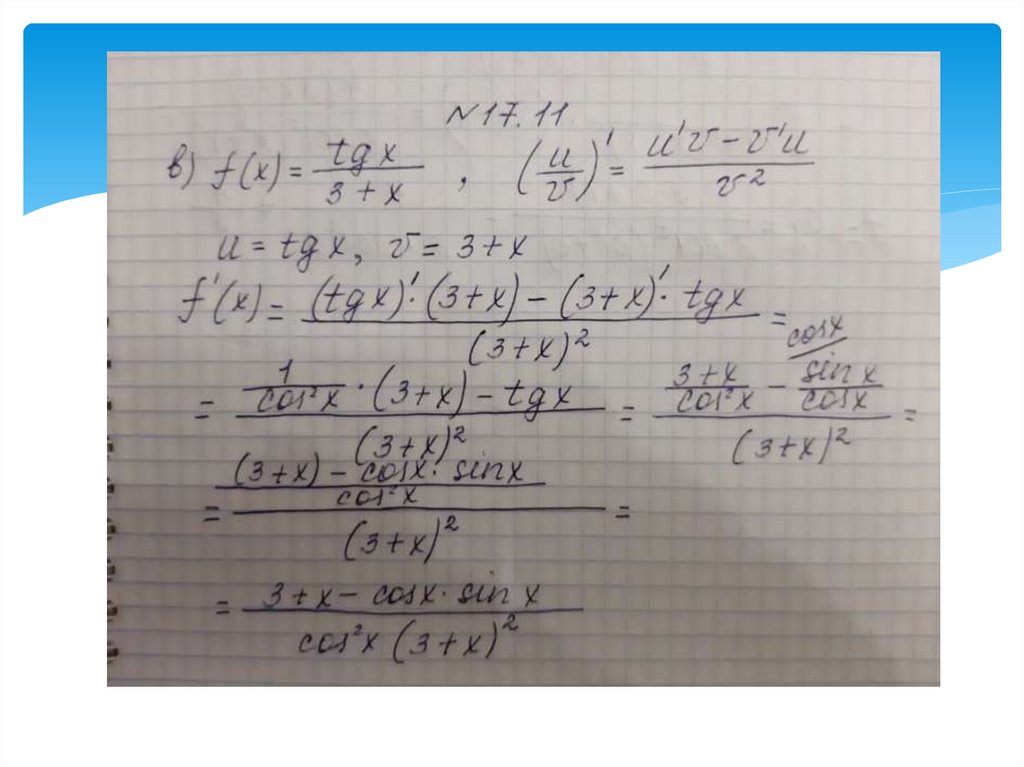 N 17.11
в) f(x) = tg x / 3 + x , (u/v)' = u'v − v'u / v²
u = tg x, v = 3 + x
f'(x) = (tg x)' · (3 + x) − (3 + x)' · tg x / (3 + x)² =
= 1/cos²x · (3 + x) − tg x / (3 + x)² = 3 + x/cos²x − sin x/cos x cosx/ / (3 + x)² =
= (3 + x) − cosx · sinx / cos²x / (3 + x)² =
= 3 + x − cosx · sin x / cos²x (3 + x)²